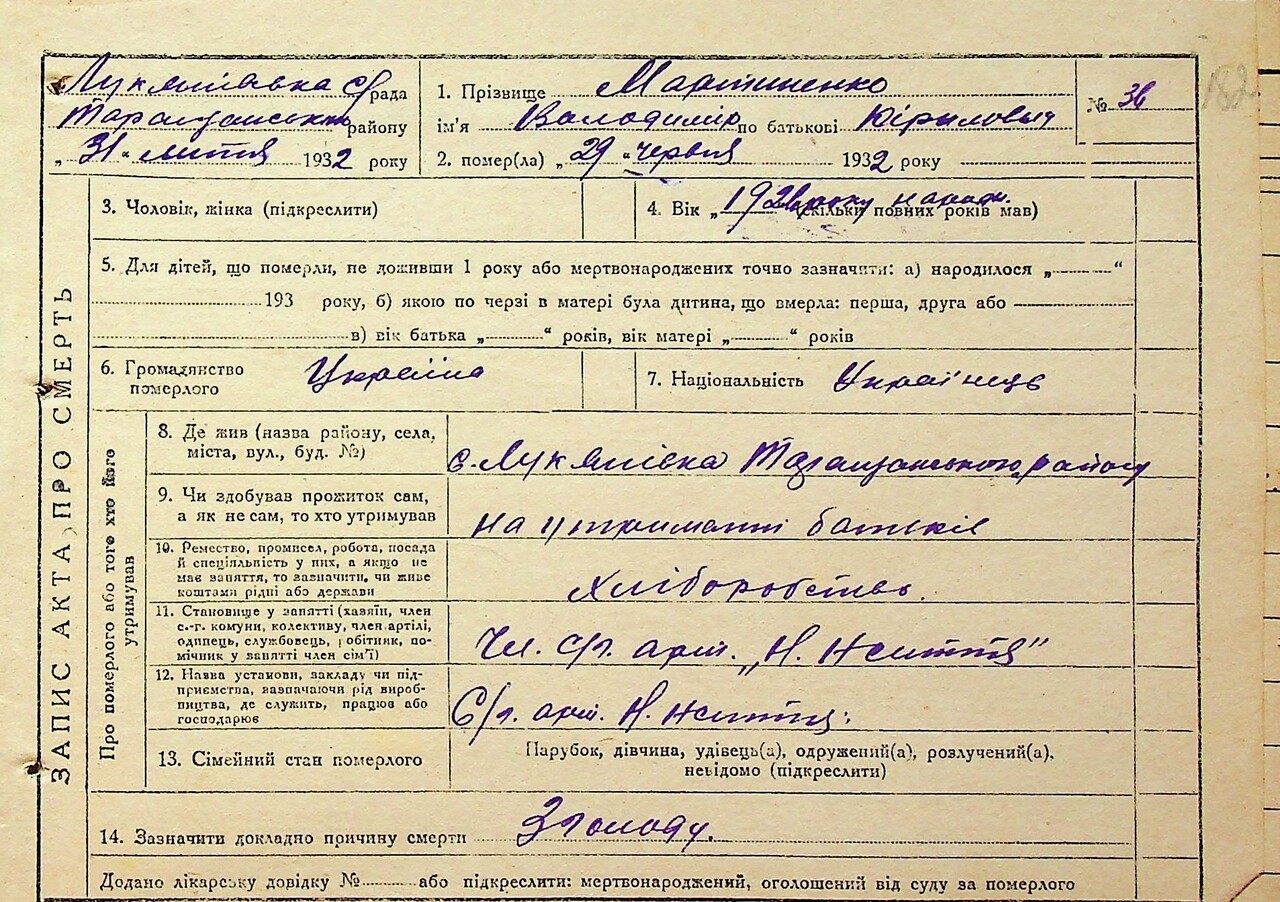 Лукянівка с/рада
Таращанськ району
„ 31 „ липня 1932 року
1. Прізвище Мартиненко
ім'я Володимір по батькові Кірылович
2. помер(ла) „ 29 „ червня 1932 року
№ 36
182
ЗАПИС АКТА ПРО СМЕРТЬ
3. Чоловік, жінка (підкреслити)
4. Вік „ року народ. (скільки повних років мав)
5. Для дітей, що померли, не доживши 1 року або мертвонароджених точно зазначити: а) народилося „ “
193 року, б) якою по черзі в матері була дитина, що вмерла: перша, друга або
в) вік батька „ “ років, вік матері „ “ років
6. Громадянство
померлого
Україна
7. Національність Українець
Про померлого або того хто його
утримував
8. Де жив (назва району, села,
міста, вул., буд. №)
с. Лукянівка Таращанського району
9. Чи здобував прожиток сам,
а як не сам, то хто утримував
на утриманні батьків
10. Ремество, промисел, робота, посада
й спеціяльність у них, а якщо не
має запяття, то зазначити, чи живе
коштами рідні або держави
Хліборобство.
11. Становище у запятті (хазяїн, член
с.-г. комуни, колективу, член артілі,
одинець, службовець, робітник, по-
мічник у запятті член сім'ї)
Чл. с/г. арт. „Н. Життя”
12. Назва установи, закладу чи під-
приємства, зазпачаючи рід вироб-
ництва, де служить, працює або
господарює
С/г. арт. Н. Життя.
13. Сімейний стан померлого
Парубок, дівчина, удівець(а), одружений(а), розлучений(а),
невідомо (підкреслити)
14. Зазначити докладно причину смерти З голоду.
Додано лікарську довідку № або підкреслити: мертвонароджений, оголошений від суду за померлого